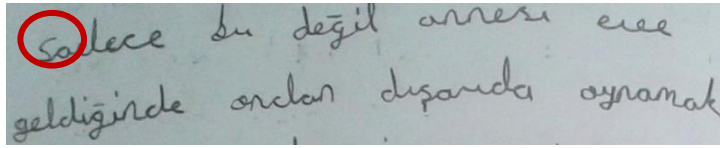 Sadece bu değil annesi eve
geldiğinde ondan dışarıda oynamak